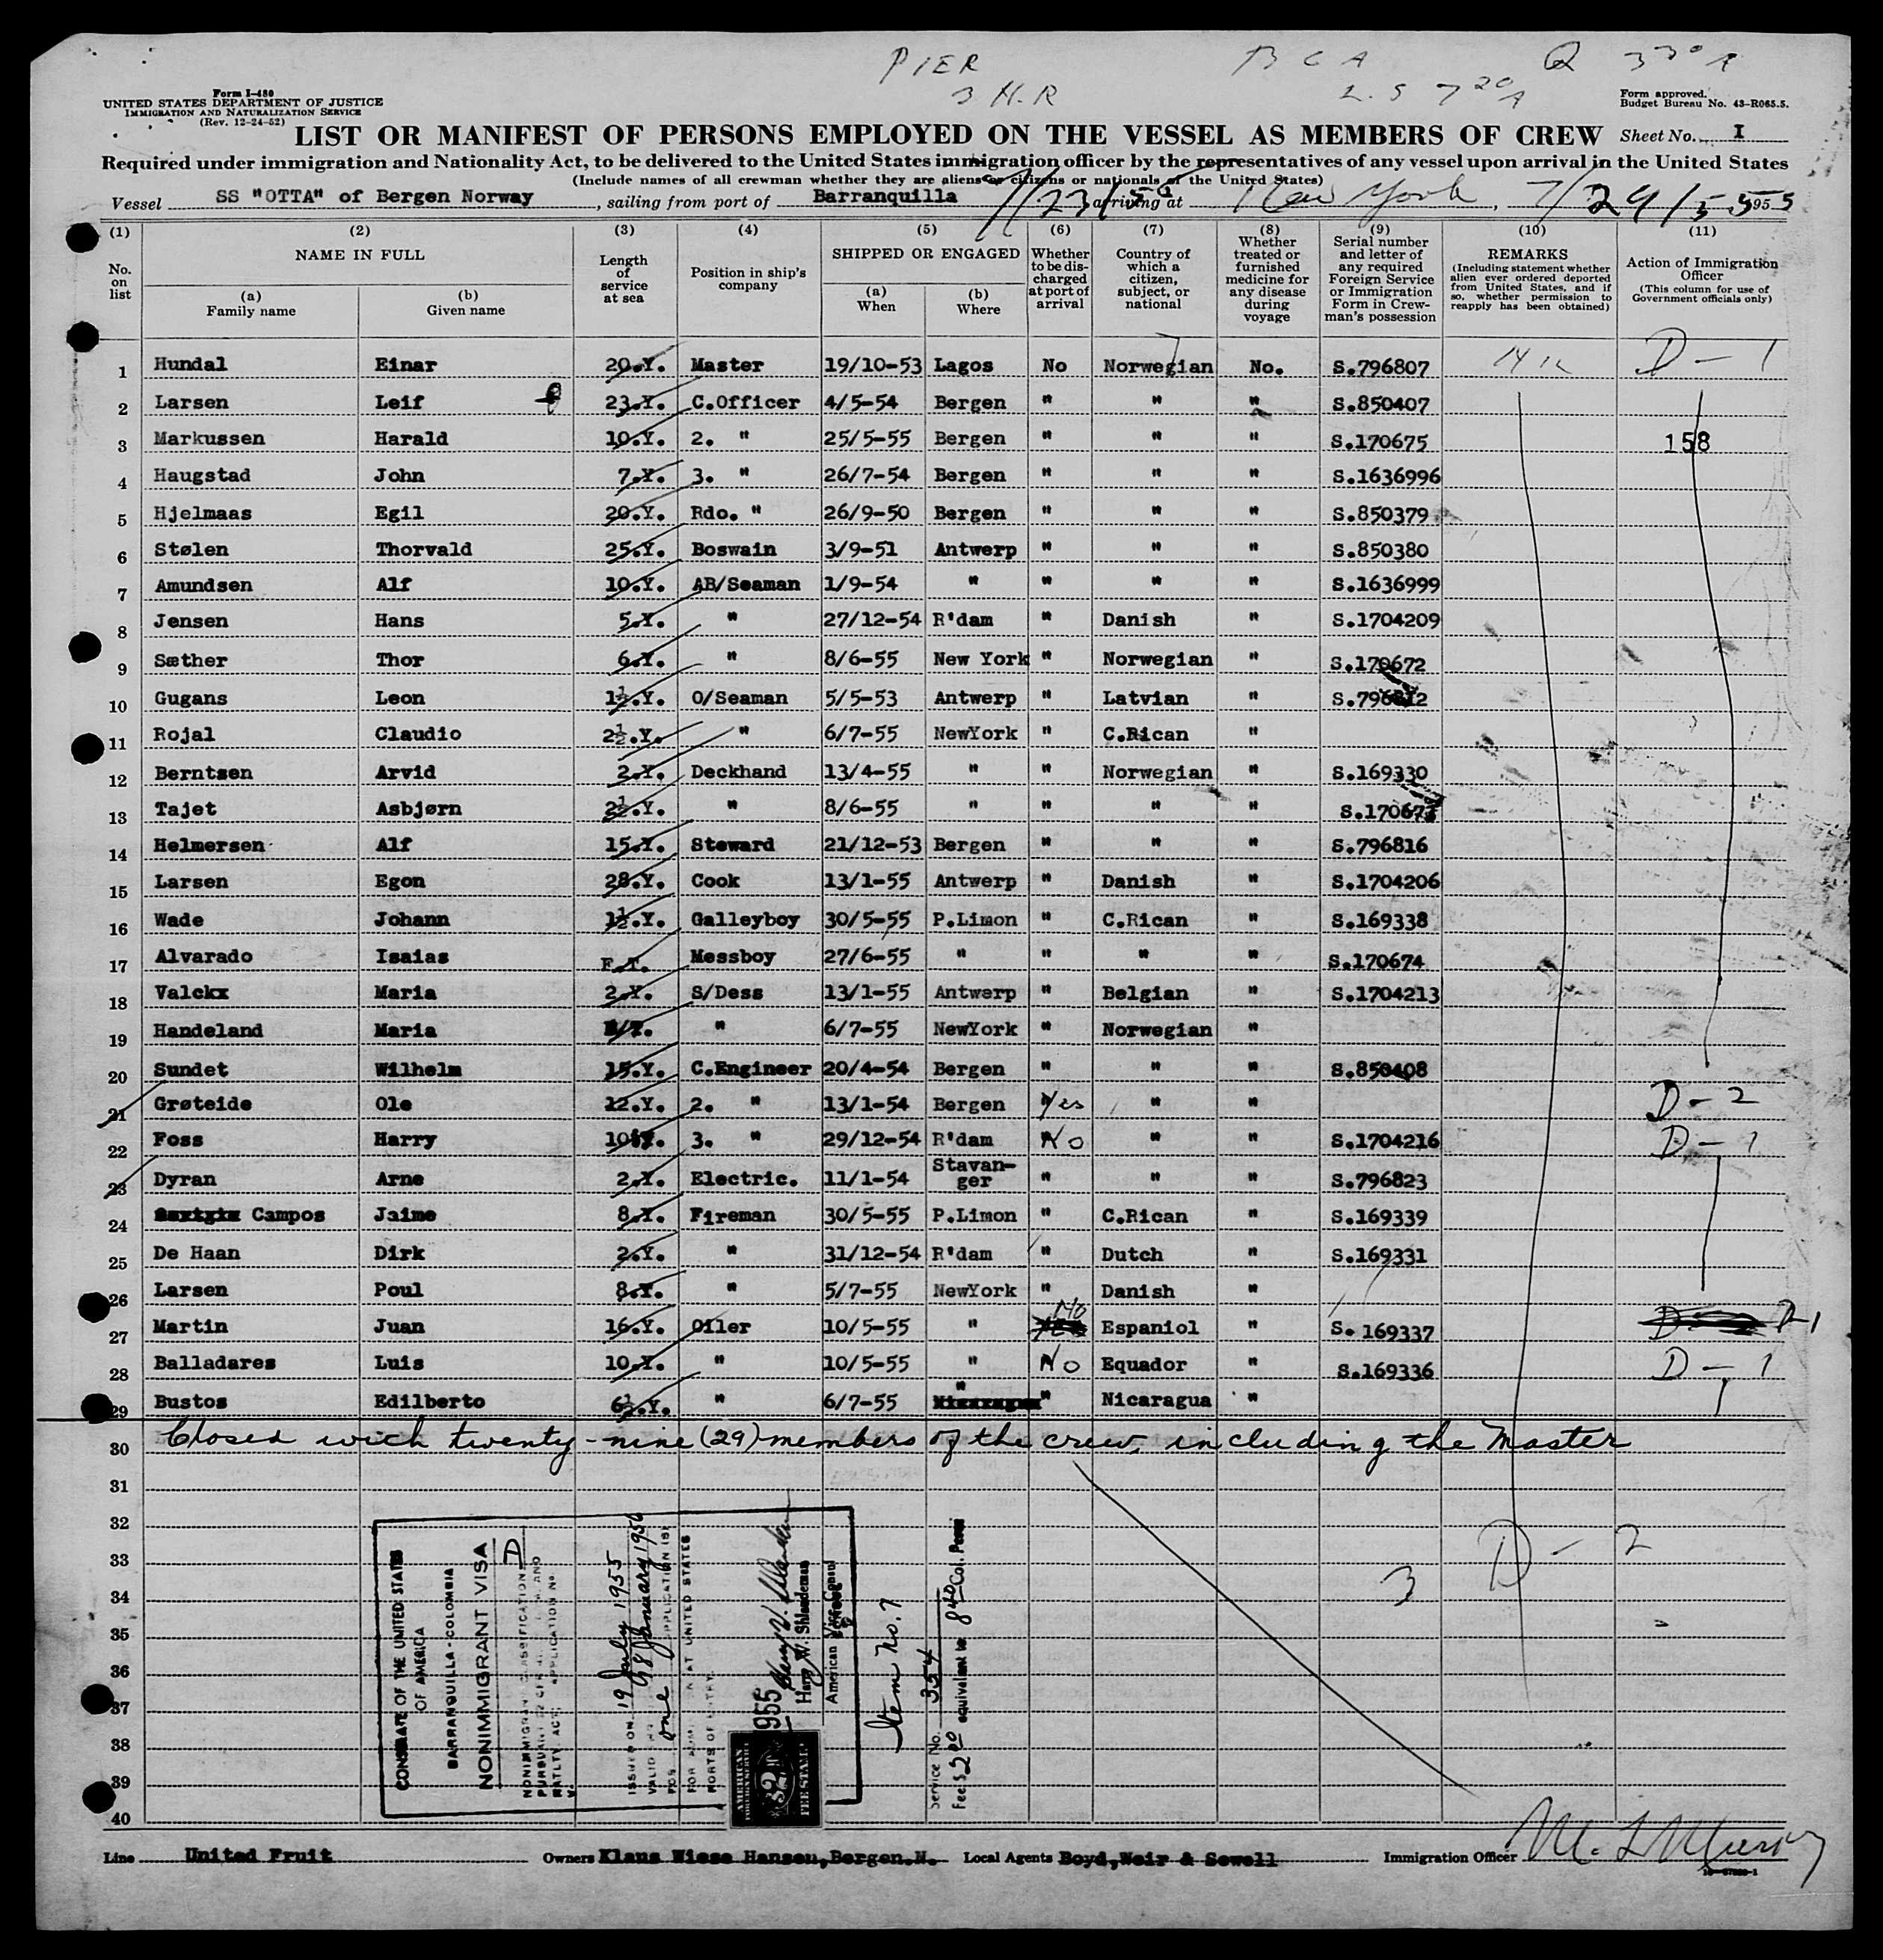 PIER
3 H.R
B C A
L.S 7 20 A
Q 33° A
Form I-480
UNITED STATES DEPARTMENT OF JUSTICE
IMMIGRATION AND NATURALIZATION SERVICE
(Rev. 12-24-52)
Form approved.
Budget Bureau No. 43-R065.5.
LIST OR MANIFEST OF PERSONS EMPLOYED ON THE VESSEL AS MEMBERS OF CREW Sheet No. I
Required under immigration and Nationality Act, to be delivered to the United States immigration officer by the representatives of any vessel upon arrival in the United States
(Include names of all crewman whether they are aliens or citizens or nationals of the United States)
Vessel SS "OTTA" of Bergen Norway, sailing from port of Barranquilla 7/23/55 arriving at New York, 7/29/55 1955
(1) No. on list
(2) NAME IN FULL
(a) Family name
(b) Given name
(3) Length of service at sea
(4) Position in ship's company
(5) SHIPPED OR ENGAGED
(a) When
(b) Where
(6) Whether to be discharged at port of arrival
(7) Country of which a citizen, subject, or national
(8) Whether treated or furnished medicine for any disease during voyage
(9) Serial number and letter of any required Foreign Service or Immigration Form in Crewman's possession
(10) REMARKS (Including statement whether alien ever ordered deported from United States, and if so, whether permission to reapply has been obtained)
(11) Action of Immigration Officer (This column for use of Government officials only)
1 Hundal Einar 20.Y. Master 19/10-53 Lagos No Norwegian No. S.796807 D-1
2 Larsen Leif 23.Y. C.Officer 4/5-54 Bergen " " " S.850407
3 Markussen Harald 10.Y. 2. " 25/5-55 Bergen " " " S.170675 158
4 Haugstad John 7.Y. 3. " 26/7-54 Bergen " " " S.1636996
5 Hjelmaas Egil 20.Y. Rdo. " 26/9-50 Bergen " " " S.850379
6 Stølen Thorvald 25.Y. Boswain 3/9-51 Antwerp " " " S.850380
7 Amundsen Alf 10.Y. AB/Seaman 1/9-54 " " " " S.1636999
8 Jensen Hans 5.Y. " 27/12-54 R'dam " Danish " S.1704209
9 Sæther Thor 6.Y. " 8/6-55 New York " Norwegian " S.170672
10 Gugans Leon 1½.Y. O/Seaman 5/5-53 Antwerp " Latvian " S.796812
11 Rojal Claudio 2½.Y. " 6/7-55 NewYork " C.Rican "
12 Berntsen Arvid 2.Y. Deckhand 13/4-55 " " Norwegian " S.169330
13 Tajet Asbjørn 2½.Y. " 8/6-55 " " " " S.170673
14 Helmersen Alf 15.Y. Steward 21/12-53 Bergen " " " S.796816
15 Larsen Egon 28.Y. Cook 13/1-55 Antwerp " Danish " S.1704206
16 Wade Johann 1½.Y. Galleyboy 30/5-55 P.Limon " C.Rican " S.169338
17 Alvarado Isaias F.T. Messboy 27/6-55 " " " " S.170674
18 Valckx Maria 2.Y. S/Dess 13/1-55 Antwerp " Belgian " S.1704213
19 Handeland Maria " 6/7-55 NewYork " Norwegian "
20 Sundet Wilhelm 15.Y. C.Engineer 20/4-54 Bergen " " " S.850408
21 Grøteide Ole 12.Y. 2. " 13/1-54 Bergen Yes " " D-2
22 Foss Harry 3. " 29/12-54 R'dam No " " S.1704216 D-1
23 Dyran Arne 2.Y. Electric. 11/1-54 Stavanger " " " S.796823
24 Campos Jaime 8.Y. Fireman 30/5-55 P.Limon " C.Rican " S.169339
25 De Haan Dirk 2.Y. " 31/12-54 R'dam " Dutch " S.169331
26 Larsen Poul 8.Y. " 5/7-55 NewYork " Danish "
27 Martin Juan 16.Y. Oiler 10/5-55 " No Espaniol " S.169337 D-1
28 Balladares Luis 10.Y. " 10/5-55 " No Equador " S.169336 D-1
29 Bustos Edilberto 6½.Y. " 6/7-55 " " Nicaragua "
Closed with twenty-nine (29) members of the crew, including the Master
30
31
32
33
34
35
36
37
38
39
40
D-2
3
CONSULATE OF THE UNITED STATES
OF AMERICA
BARRANQUILLA - COLOMBIA
NONIMMIGRANT VISA
NONIMMIGRANT CLASSIFICATION D
ISSUED ON 19 July 1955
VALID 18 January 1956
FOR one APPLICATION (S)
PORTS OF ENTRY.
1955
Harry W. Shlaudeman
American Vice Consul
AMERICAN
$2
FEE STAMP
Item No. 7
Service No. 334
Fee $2.00 equivalent to 8.40 Col. Pesos
Line United Fruit Owners Klaus Wiese Hansen, Bergen.N. Local Agents Boyd, Weir & Sewell Immigration Officer